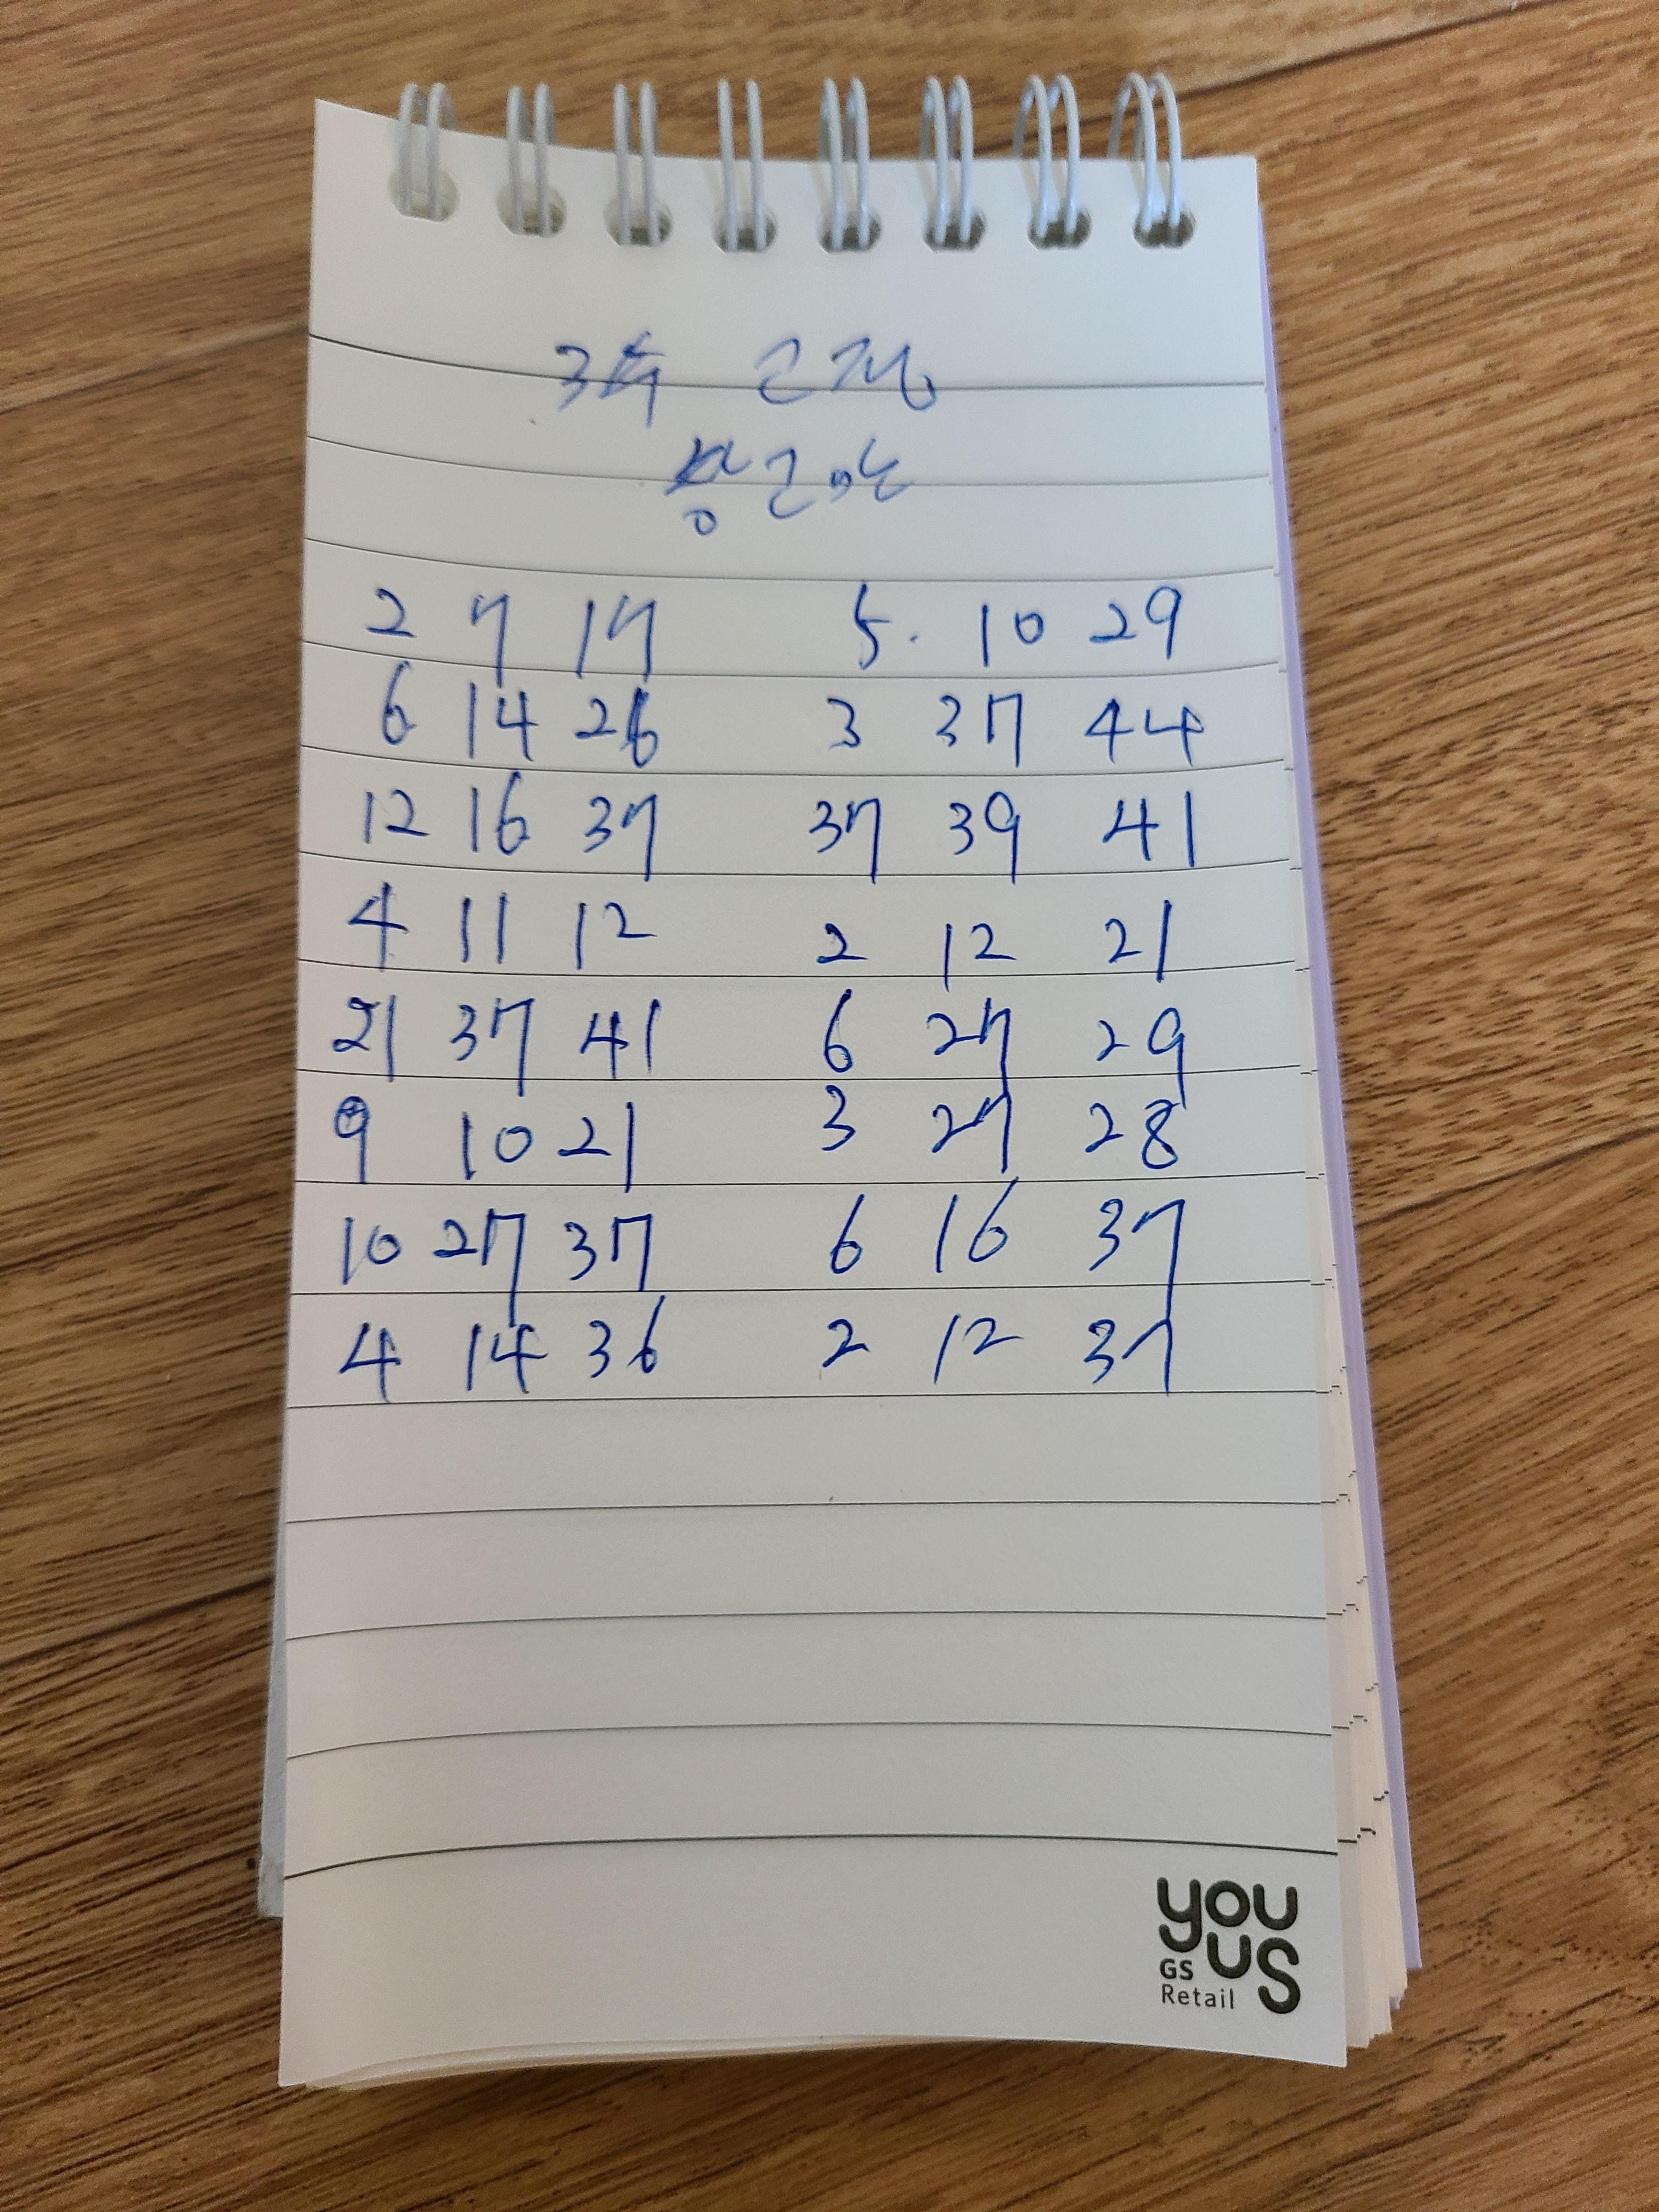 3수 고정
2 7 17 5. 10 29
6 14 26 3 37 44
12 16 37 37 39 41
4 11 12 2 12 21
21 37 41 6 27 29
9 10 21 3 27 28
10 27 37 6 16 37
4 14 36 2 12 37
you
us
GS
Retail